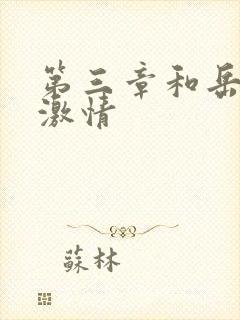 第三章和岳
激情
蘇林